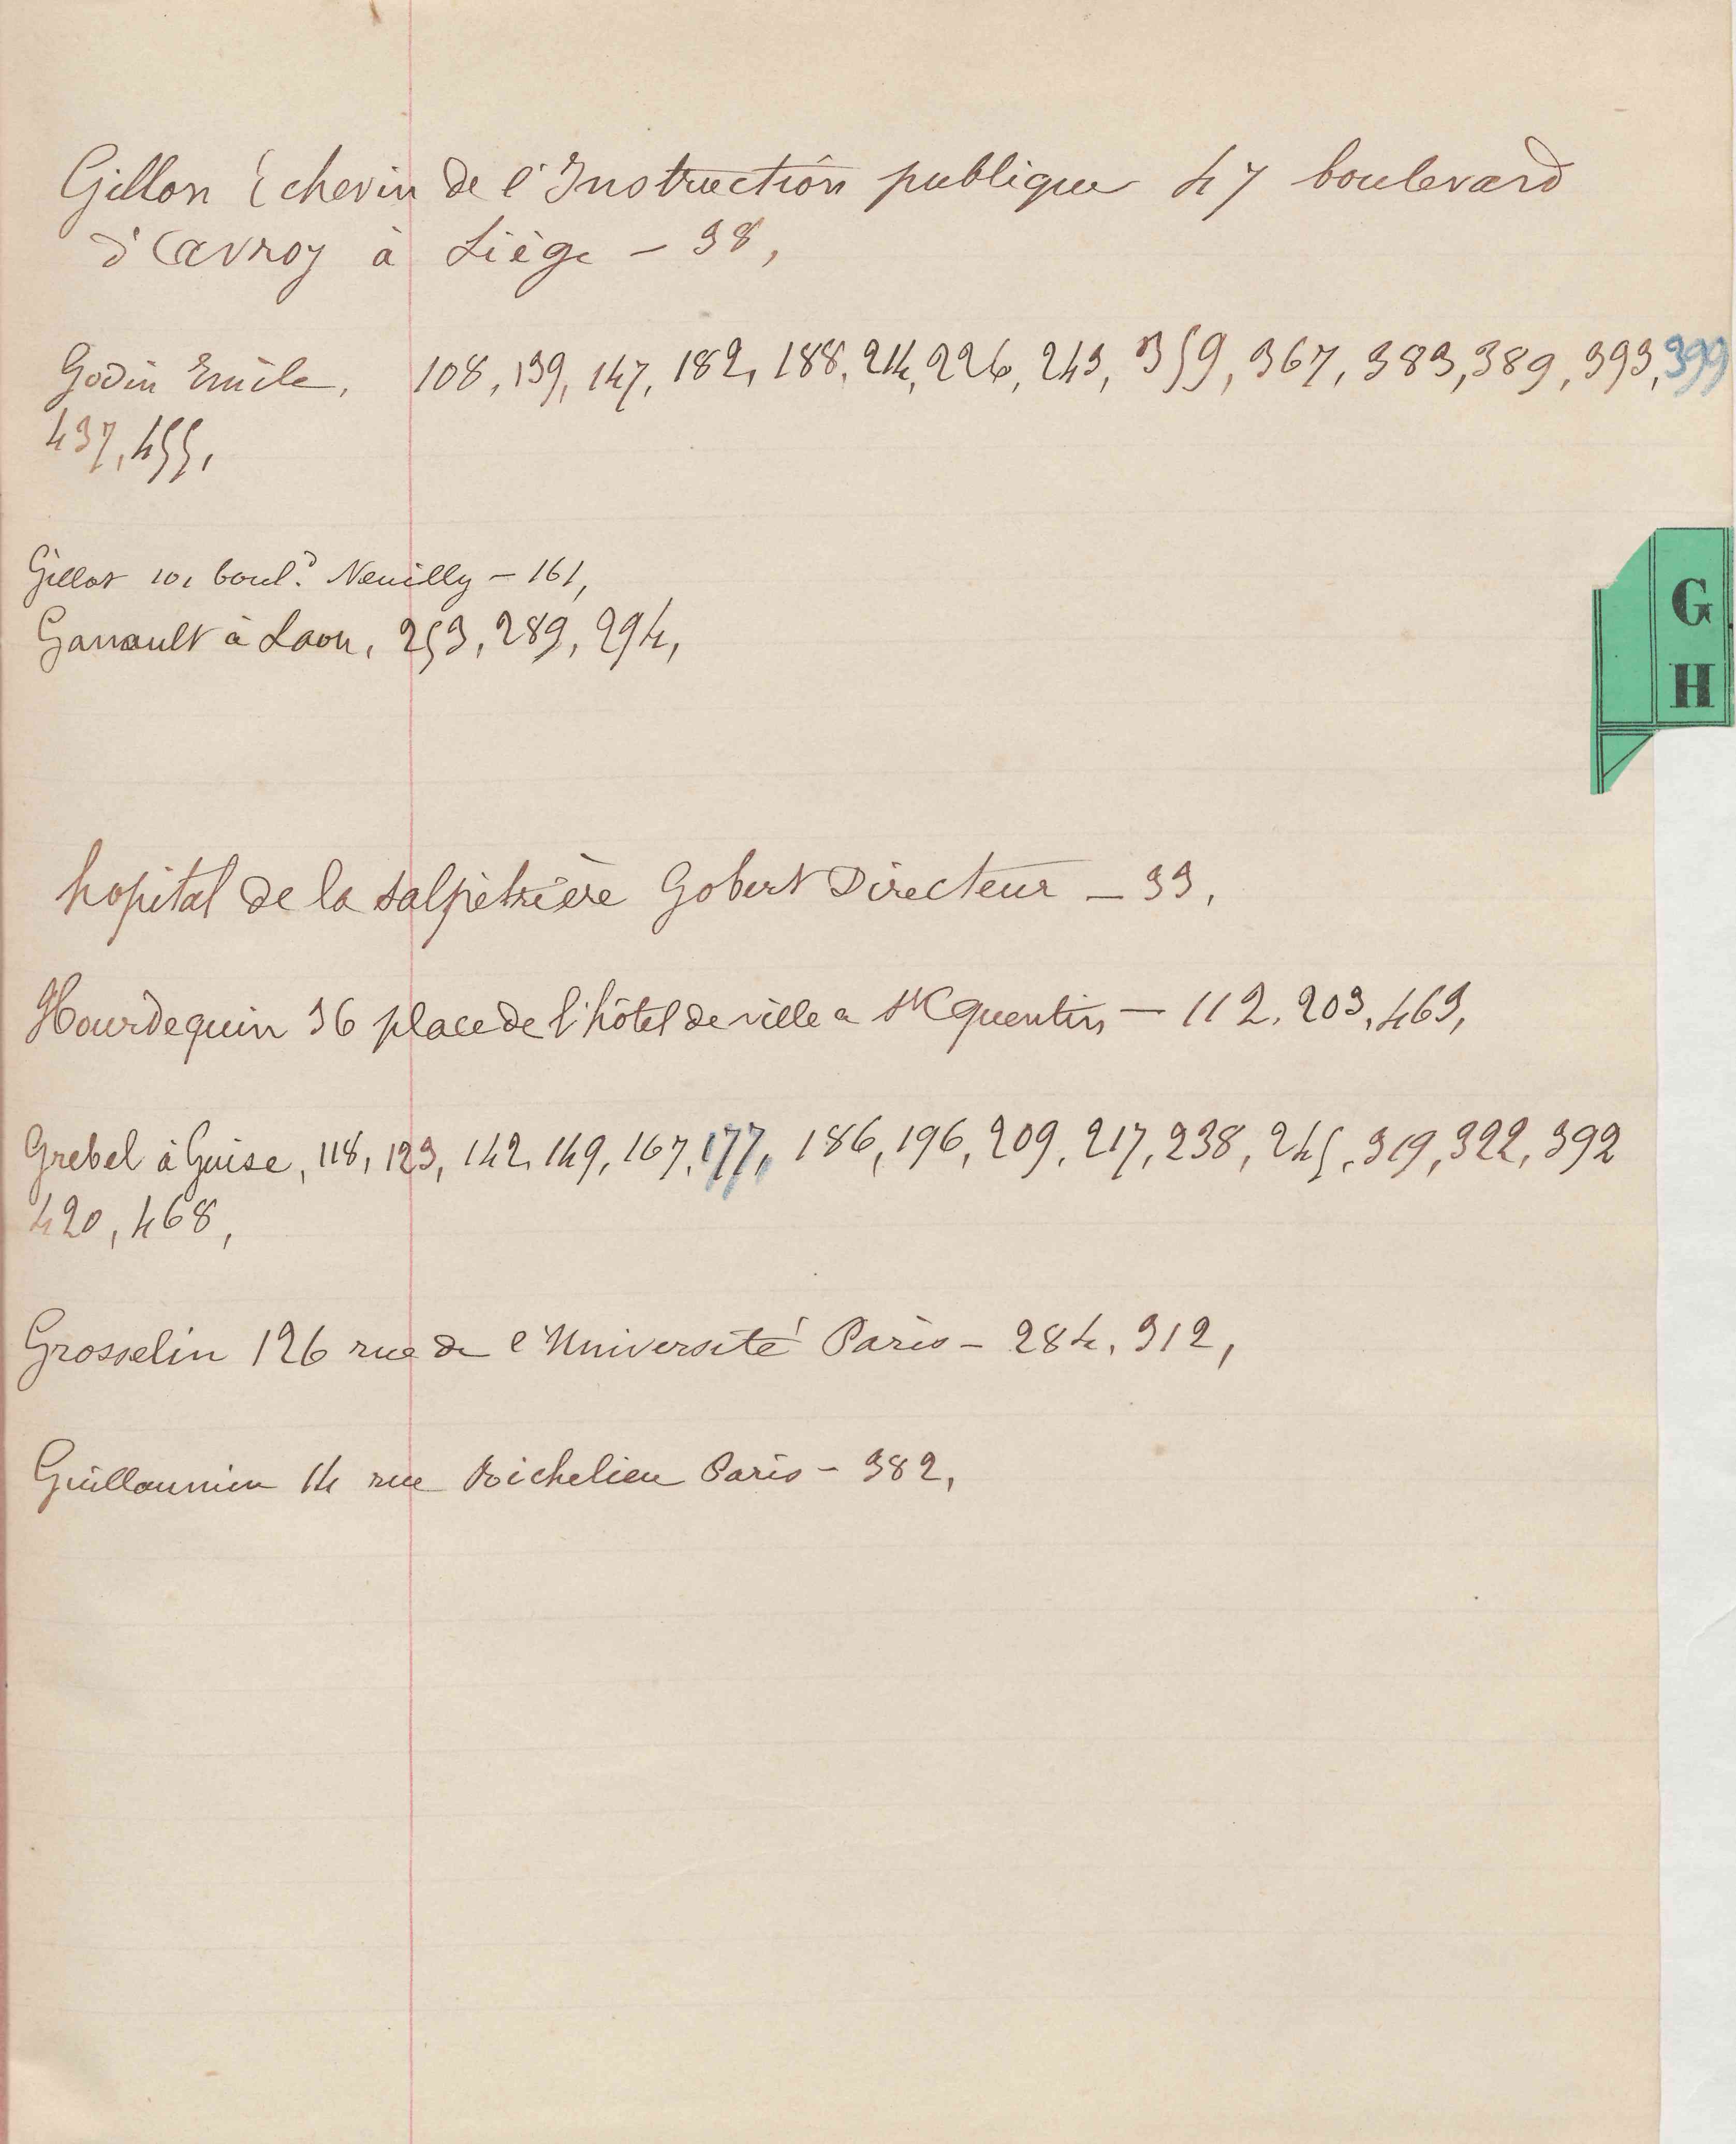 Gillon Échevin de l'Instruction publique 47 boulevard
d'Avroy à Liège – 38,
Godin Emile, 108, 139, 147, 182, 188, 214, 226, 243, 359, 367, 383, 389, 393, 399
437, 455,
Gillot 101 boul.d Neuilly – 161,
Garnault à Laon, 253, 289, 294,
G
H
hopital de la salpètrière Gobert Directeur – 33,
Hourdequin 36 place de l'hôtel de ville a St Quentin – 112, 203, 463,
Grebel à Guise, 118, 123, 142, 149, 167, 177, 186, 196, 209, 217, 238, 245, 319, 322, 392
420, 468,
Grosselin 126 rue de l'Université Paris – 284, 312,
Guillaumin 14 rue Richelieu Paris – 382,